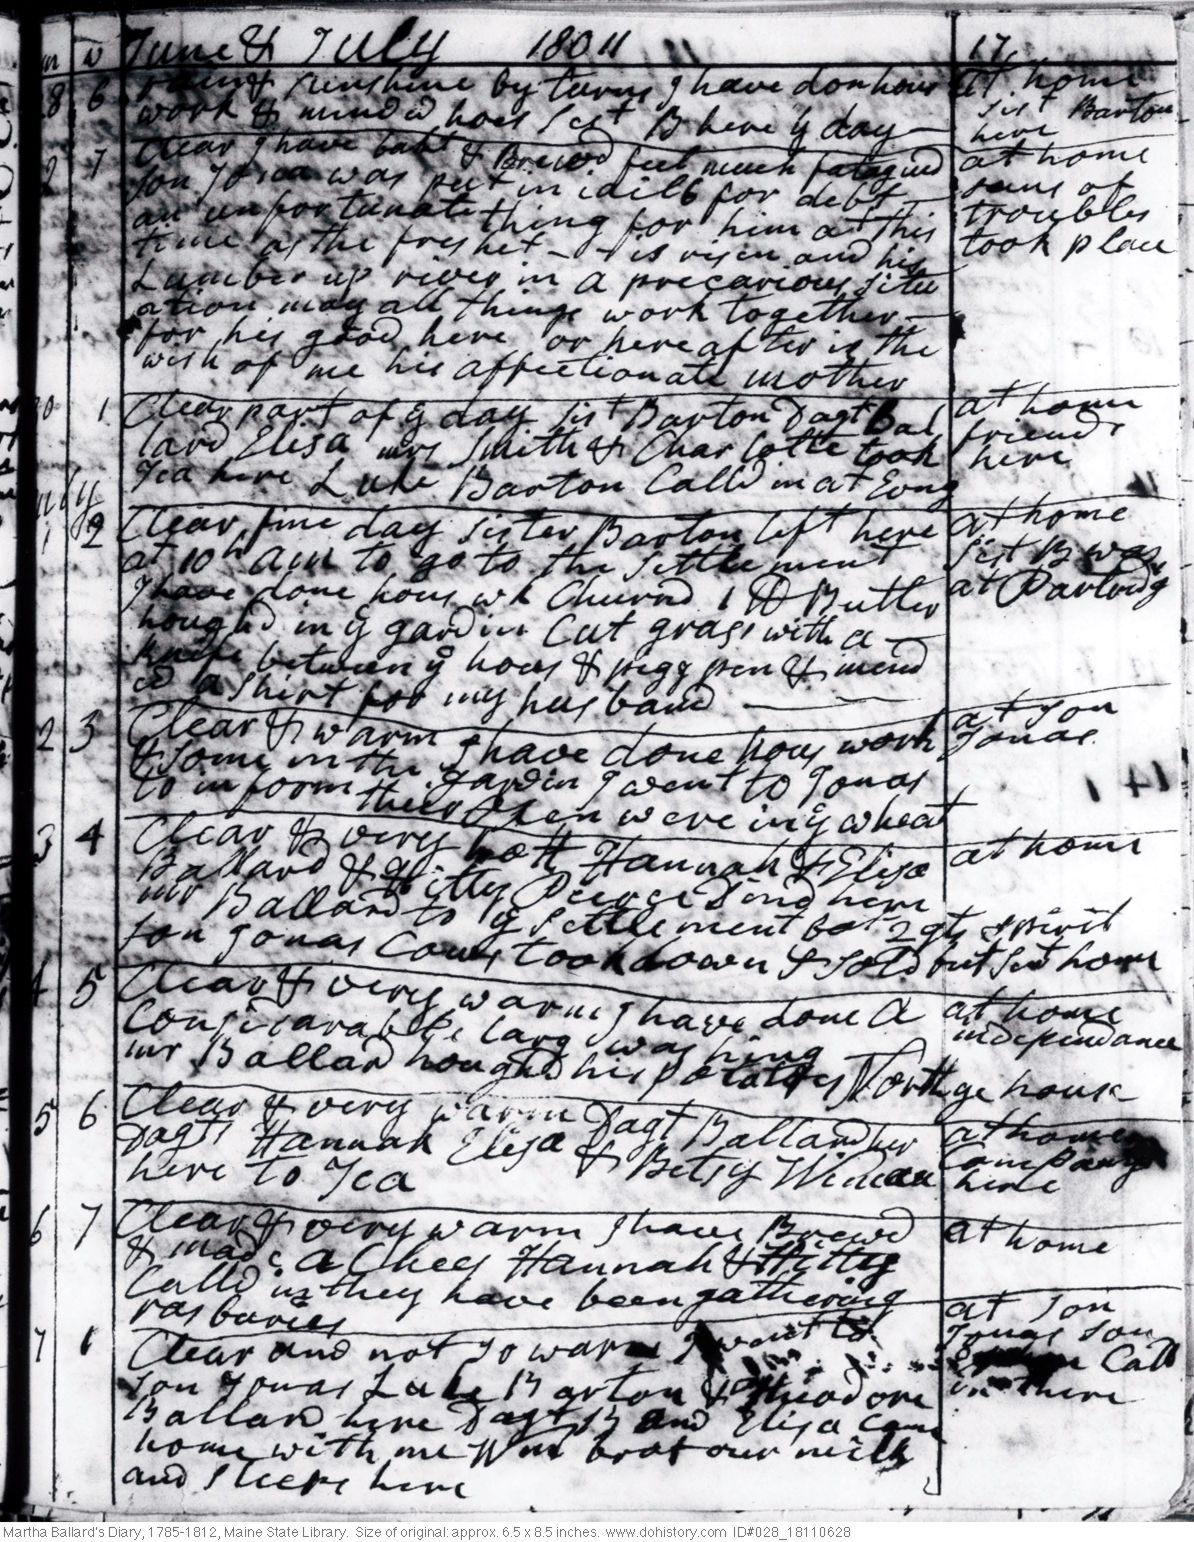 m w June & July 1811 17
28 6 rain & sunshine by turns I have don hous at home
work & minded hoes Sist B here ÿ day — Sist Barton
here
2 7 Clear I have bakt & Brewd feel much fatagued at home
son Jonas was put in for debt — sens of
an unfortunate thing for him at this troubles
time as the freshet — is risen and his took place
Lumber up river in a precarious situ
ation may all things work together —
for his good here or hereafter is the
wish of me his affectionate mother
30 1 Clear part of ÿ day Sist Barton Dagt Bal at home
lard Elisa mrs Smith & Charlotte took friends
Tea here Luke Barton Calld in at Evng here
July
1 2 Clear fine day Sister Barton left here at home
at 10 h am to go to the Settlement Sist B was
I have done hous wk Churnd 1 lb Butter at Partridg
hough'd in ÿ gardin Cut grass with a —
knife between ÿ hous & pigg pen & mend
ed a Shirt for my husband —
2 3 Clear & warm I have done hous work at son
& some in the gardin I went to Jonas Jonas
to inform there were in ÿ wheat
3 4 Clear & very hott Hannah & Elisa at home
Ballard & Hitty Peirce Dind here
mr Ballard to ÿ Settlement bot 2 qts spirit
son Jonas Cows took down & sold but sent home
4 5 Clear & very warm I have done A at home
Considarable larg washing independance
mr Ballard hough'd his potatoes North ge house
5 6 Clear & very warm Dagt Ballard her at home
Dagts Hannah Elisa & Betsy Company
here to Tea here
6 7 Clear & very warm I have Brewd at home
& made a Chees Hannah & Hitty
Calld in they have been gathering
rasburies
7 1 Clear and not so warm I went to at Son
son Jonas Luke Barton & Theodore Jonas son
Ballard here Dagt B and Elisa came Calld
home with me Wm brot our milk in there
and sleeps here
Martha Ballard's Diary, 1785-1812, Maine State Library. Size of original: approx. 6.5 x 8.5 inches. www.dohistory.com ID#028_18110628